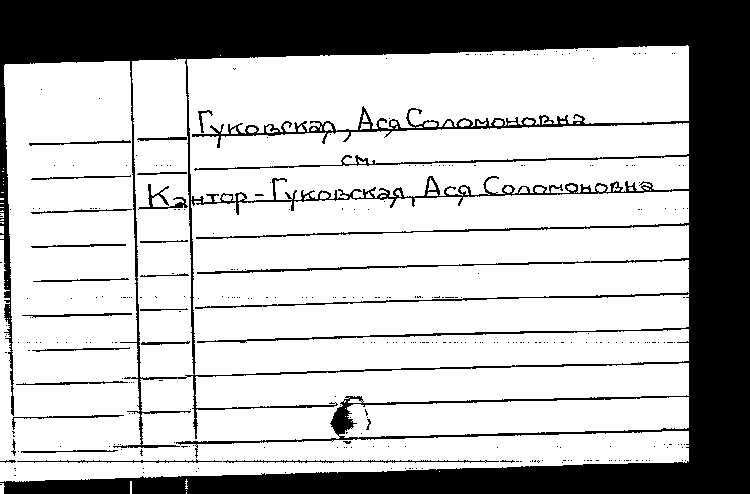 Гуковская, Ася Соломоновна
см.
Кантор-Гуковская, Ася Соломоновна